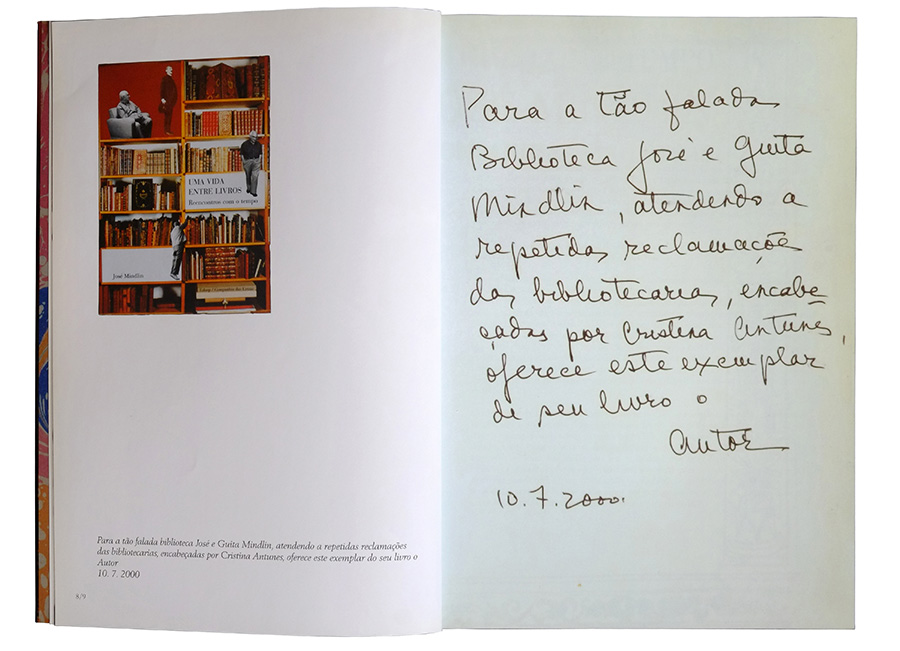 UMA VIDA
ENTRE LIVROS
Reencontros com o tempo
José Mindlin
Para a tão falada biblioteca José e Guita Mindlin, atendendo a repetidas reclamações
das bibliotecarias, encabeçadas por Cristina Antunes, oferece este exemplar do seu livro o
Autor
10. 7. 2000
8/9
Para a tão falada
Biblioteca José e Guita
Mindlin, atendendo a
repetidas reclamações
das bibliotecarias, encabe
çadas por Cristina Antunes,
oferece este exemplar
de seu livro o
Autor
10.7.2000.